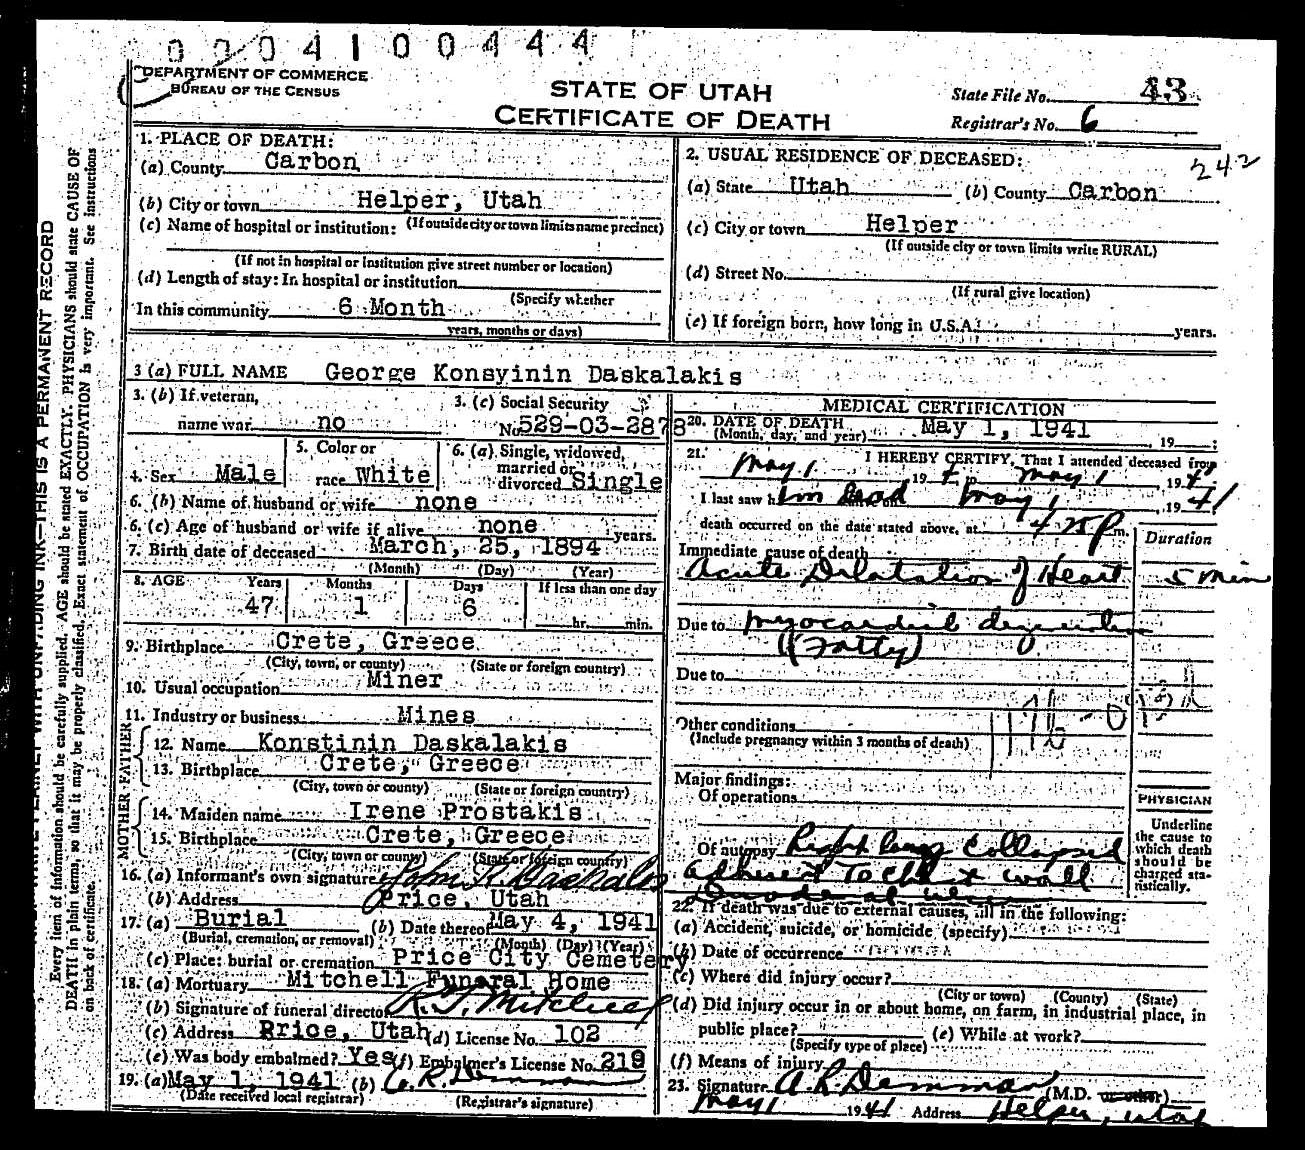 0004100444
DEPARTMENT OF COMMERCE
BUREAU OF THE CENSUS
STATE OF UTAH
CERTIFICATE OF DEATH
State File No. 43
Registrar's No. 6
242
1. PLACE OF DEATH:
(a) County Carbon
(b) City or town Helper, Utah
(c) Name of hospital or institution: (If outside city or town limits name precinct)
(If not in hospital or institution give street number or location)
(d) Length of stay: In hospital or institution
(Specify whether
In this community 6 Month
years, months or days)
2. USUAL RESIDENCE OF DECEASED:
(a) State Utah (b) County Carbon
(c) City or town Helper
(If outside city or town limits write RURAL)
(d) Street No.
(If rural give location)
(e) If foreign born, how long in U.S.A.? years.
3 (a) FULL NAME George Konsyinin Daskalakis
3. (b) If veteran, name war no
3. (c) Social Security No. 529-03-2878
4. Sex Male
5. Color or race White
6. (a) Single, widowed, married or divorced Single
6. (b) Name of husband or wife none
6. (c) Age of husband or wife if alive none years.
7. Birth date of deceased March, 25, 1894
(Month) (Day) (Year)
8. AGE Years Months Days If less than one day
47 1 6 hr. min.
9. Birthplace Crete, Greece
(City, town, or county) (State or foreign country)
10. Usual occupation Miner
11. Industry or business Mines
FATHER
12. Name Konstinin Daskalakis
13. Birthplace Crete, Greece
(City, town or county) (State or foreign country)
MOTHER
14. Maiden name Irene Prostakis
15. Birthplace Crete, Greece
(City, town or county) (State or foreign country)
16. (a) Informant's own signature John K Daskalas
(b) Address Price, Utah
17. (a) Burial (b) Date thereof May 4, 1941
(Burial, cremation, or removal) (Month) (Day) (Year)
(c) Place: burial or cremation Price City Cemetery
18. (a) Mortuary Mitchell Funeral Home
(b) Signature of funeral director R. J. Mitchell
(c) Address Price, Utah (d) License No. 102
(e) Was body embalmed? Yes (f) Embalmer's License No. 219
19. (a) May 1, 1941 (b) A. R. Demman
(Date received local registrar) (Registrar's signature)
MEDICAL CERTIFICATION
20. DATE OF DEATH May 1, 1941, 19 ;
(Month, day, and year)
21. I HEREBY CERTIFY, That I attended deceased from
May 1 19 4 to May 1, 1941
I last saw him dead May 1, 1941
death occurred on the date stated above, at 4 25 P m.
Duration
Immediate cause of death
Acute Dilatation of Heart 5 min
Due to myocardial degeneration
(Fatty)
Due to
Other conditions
(Include pregnancy within 3 months of death)
Major findings:
Of operations
PHYSICIAN
Underline the cause to which death should be charged statistically.
Of autopsy Right lung collapsed
adherent to chest wall
Duodenal ulcer
22. If death was due to external causes, fill in the following:
(a) Accident, suicide, or homicide (specify)
(b) Date of occurrence
(c) Where did injury occur?
(City or town) (County) (State)
(d) Did injury occur in or about home, on farm, in industrial place, in
public place? (e) While at work?
(Specify type of place)
(f) Means of injury
23. Signature A. R. Demman (M.D. or other)
May 1 1941 Address Helper, Utah
WRITE PLAINLY WITH UNFADING INK—THIS IS A PERMANENT RECORD
Every item of information should be carefully supplied. AGE should be stated EXACTLY. PHYSICIANS should state CAUSE OF
DEATH in plain terms, so that it may be properly classified. Exact statement of OCCUPATION is very important. See instructions
on back of certificate.